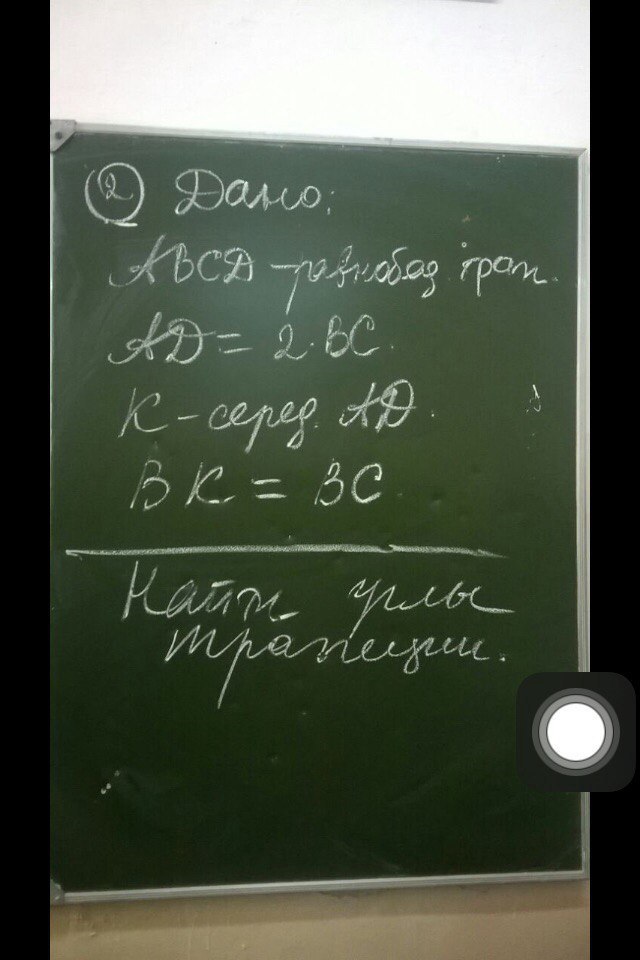 2 Дано:
ABCD - равнобед. трап.
AD = 2·BC.
K - серед. AD.
BK = BC
Найти углы
трапеции.